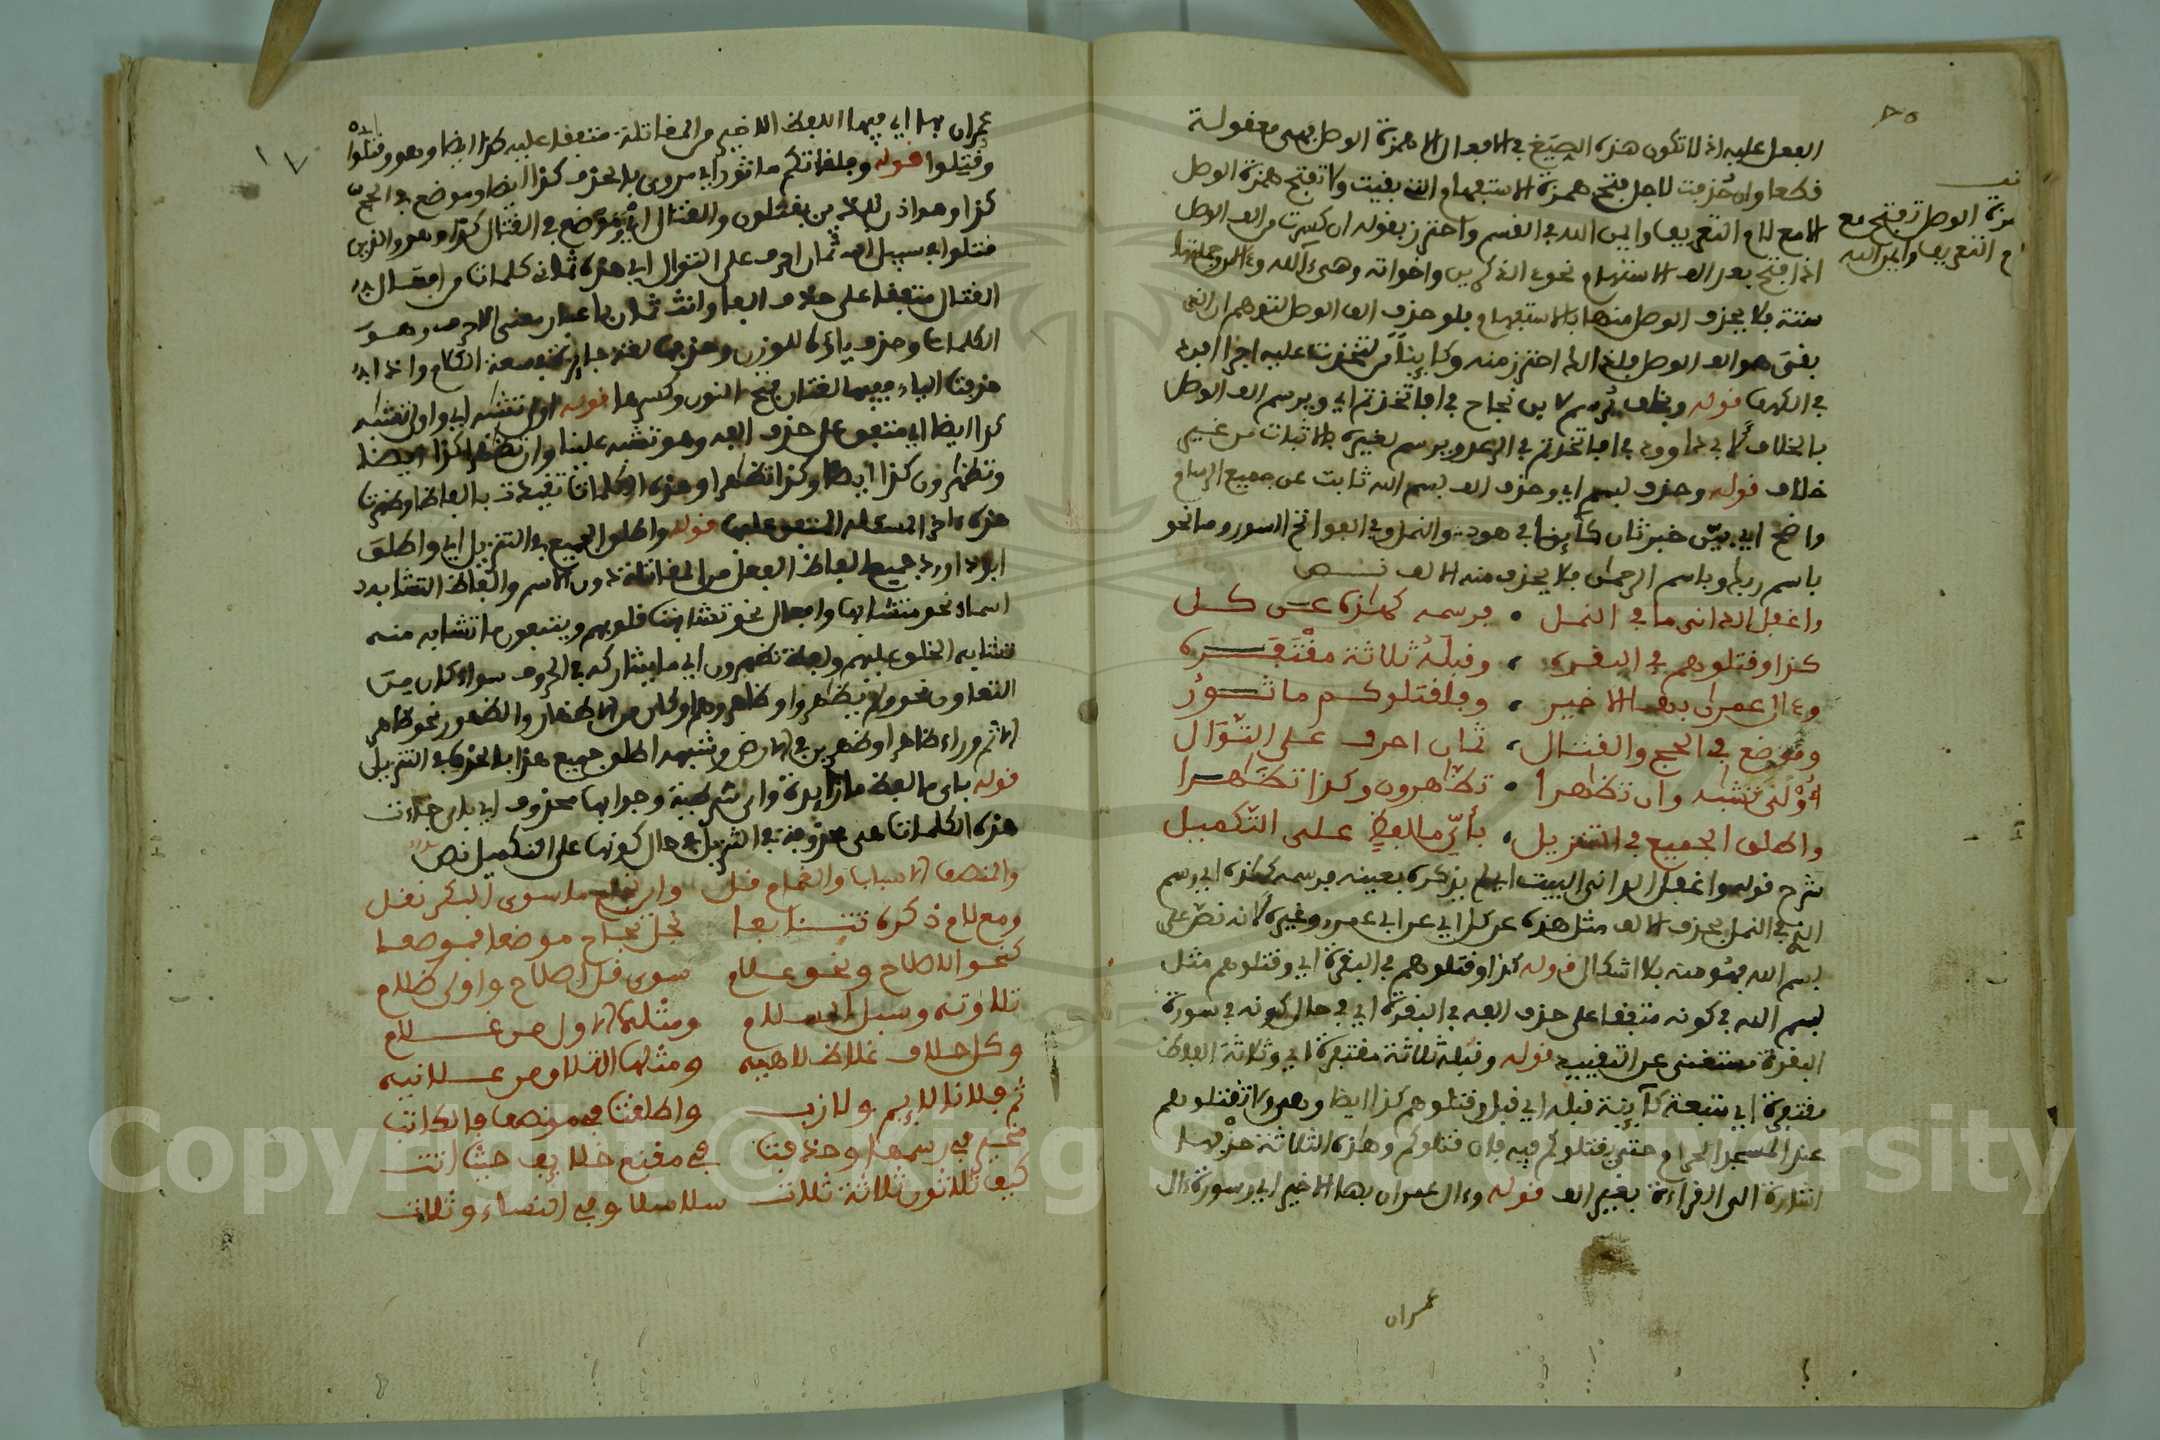 الفعل عليه اذ لا تكون هذه الصيغ في الافعال الا همزة الوصل فهي مفعولة
فطعا وان حُذفت لاجل فتح همزة الاستفهام والتي بقيت ولا تفتح همزة الوصل
الا مع لام التعريف وايمن الله في القسم واحترز بقوله ان كسرت من الف الوصل
اذا فتح بعد الف الاستفهام نحو ءالذكرين واخواته وهي ءآلله
ستة فلا يحذف الوصل منها بالاستفهام فلو حذف الف الوصل لتوهم ان التي
بقي هو الف الوصل فلهذا احترز منه
في الكهف قوله وبخلف يُرسم لابن نجاح في افاتخذتم اي ويرسم الف الوصل
بالخلاف لابي داوود في افاتخذتم في الرعد ويرسم لغيره بالاثبات من غير
خلاف قوله وحذف بسم اي وحذف الف بسم الله ثابت عن جميع الرسام
واضح اي بيّن خبر ثان كائن في هود والنمل وفي الفواتح السور وما نحو
باسم ربك وباسم الرحمن فلا يحذف منه الالف نص
واغفل الداني ما في النمل ، فرسمه كهذه عن كل
كذا وقتلوهم في البقره ، وقبله ثلاثة مقتفره
وءال عمران بها الاخير ، وفلقتلوكم ماثور
وموضع في الحج والقتال ، ثمان احرف على التوال
اولى تشبه وان تظهرا ، تظهرون وكذا تظهرا
واطلق الجميع في التنزيل ، بأيّ ما لفظٍ على التكميل
شرح قوله واغفل الداني البيت اي لم يذكره بعينه فرسمه كهذه اي رسم
التي في النمل بحذف الالف مثل هذه عن كل اي عن ابي عمرو وغيره لانه نص على
بسم الله فهو منه بلا اشكال قوله كذا وقتلوهم في البقرة اي وقتلوهم مثل
بسم الله في كونه متفقا على حذف الفه في البقرة اي في حال كونه في سورة
البقرة مستغنى عن التقييد قوله وقبله ثلاثة مقتفرة اي وثلاثة الفاظ
مقتفرة اي متبعة كائنة قبله اي قبل وقتلوهم كذا ايضا وهي ولا تقتلوهم
عند المسجد الحرام حتى يقتلوكم فيه فان قتلوكم وهذه الثلاثة حذفها
اشارة الى القراءة بغير الف قوله وءال عمران بها الاخير اي وسورة ءال
عمران
همزة الوصل تفتح مع
التعريف وايمن الله
عمران بها اي فيها اللفظ الاخير من المقاتلة متفق عليه كذا ايضا وهو وقتلوا
وقُتِلوا قوله وفلقاتلوكم ماثور اي مروي بالحذف كذا ايضا وموضع في الحج
كذا وهو اذن للذين يقتلون والقتال اي وموضع في القتال كذا وهو والذين
قتلوا في سبيل الله ثمان احرف على التوال اي هذه ثمان كلمات من افعال
القتال متفقا على حذف الفها وانث ثمان باعتبار معنى الاحرف وهو
الكلمات وحذف ياءه للوزن وحذفها لغة جائزة في سعة الكلام واذا
حذفت الياء ففيها لغتان فتح النون وكسرها قوله اولى تشبه اي واولى تشبه
كذا ايضا اي متفق على حذف الفه وهو تشبه علينا وان تظهرا كذا ايضا
وتظهرون كذا ايضا وكذا تظهرا وهذه الكلمات تقيدت بالفاظها وضمت
هذه اخر المسئلة المتفق عليها قوله واطلق الجميع في التنزيل اي واطلق
ابو داود جميع الفاظ الفعل من المقاتلة دون الاسم والفاظ التشابه
اسماء نحو متشابها وافعال نحو تشابهت قلوبهم ويتبعون ما تشابه منه
فتشابه الخلق عليهم ولفظة تظهرون اي ما يشاركه في الحروف سواء كان من
التعاون نحو ولم يظهروا وظاهروهم او كان من الاظهار والظهور نحو ظاهر
الاثم وراءه ظاهرا وظهرين في الارض وشبهه اطلق جميع هذا بالحذف في التنزيل
قوله باي ما لفظ ما زايدة واي شرطية وجوابها محذوف اي باي جاءت
هذه الكلمات هي محذوفة في التنزيل في حال كونها على التكميل نص
والمنصف الاسباب والغمام قل وابن نجاح ما سوى البكر نقل
ومع لام ذكره تتابعا نجل نجاح موضعا فموضعا
كنحو الاصلاح ونحو علام سوى قل اصلاح واولى ظلام
تلاوته وسبل السلام ومثلها الاول من غلام
وكل حلاف غلاظ لاهيه ومثلها التلاق من علانيه
ثم فلانا لايم ولازب واطلقت في منصف والكاتب
مخير في رسمها وحذفت في مقنع خلايف حيث اتت
كيف ثلاثون ثلاثة ثلاث سلاسلا وفي النساء وثلاث